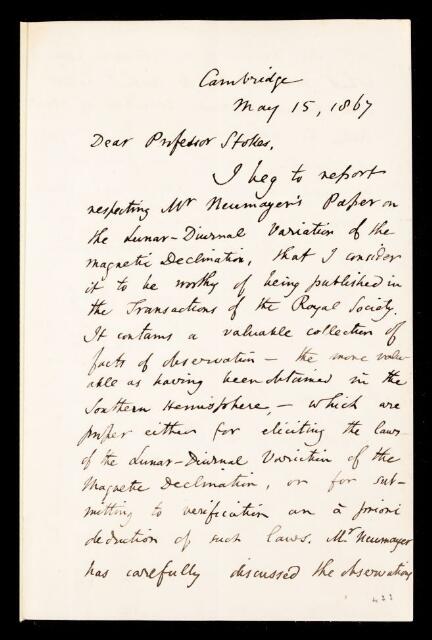 Cambridge
May 15, 1867
Dear Professor Stokes,
I beg to report
respecting Mr Neumayer's Paper on
the Lunar-Diurnal Variation of the
Magnetic Declination, that I consider
it to be worthy of being published in
the Transactions of the Royal Society.
It contains a valuable collection of
facts of observation – the more valu-
able as having been obtained in the
Southern Hemisphere, – which are
proper either for eliciting the laws
of the Lunar-Diurnal Variation of the
Magnetic Declination, or for sub-
mitting to verification an à priori
deduction of such laws. Mr Neumayer
has carefully discussed the observations